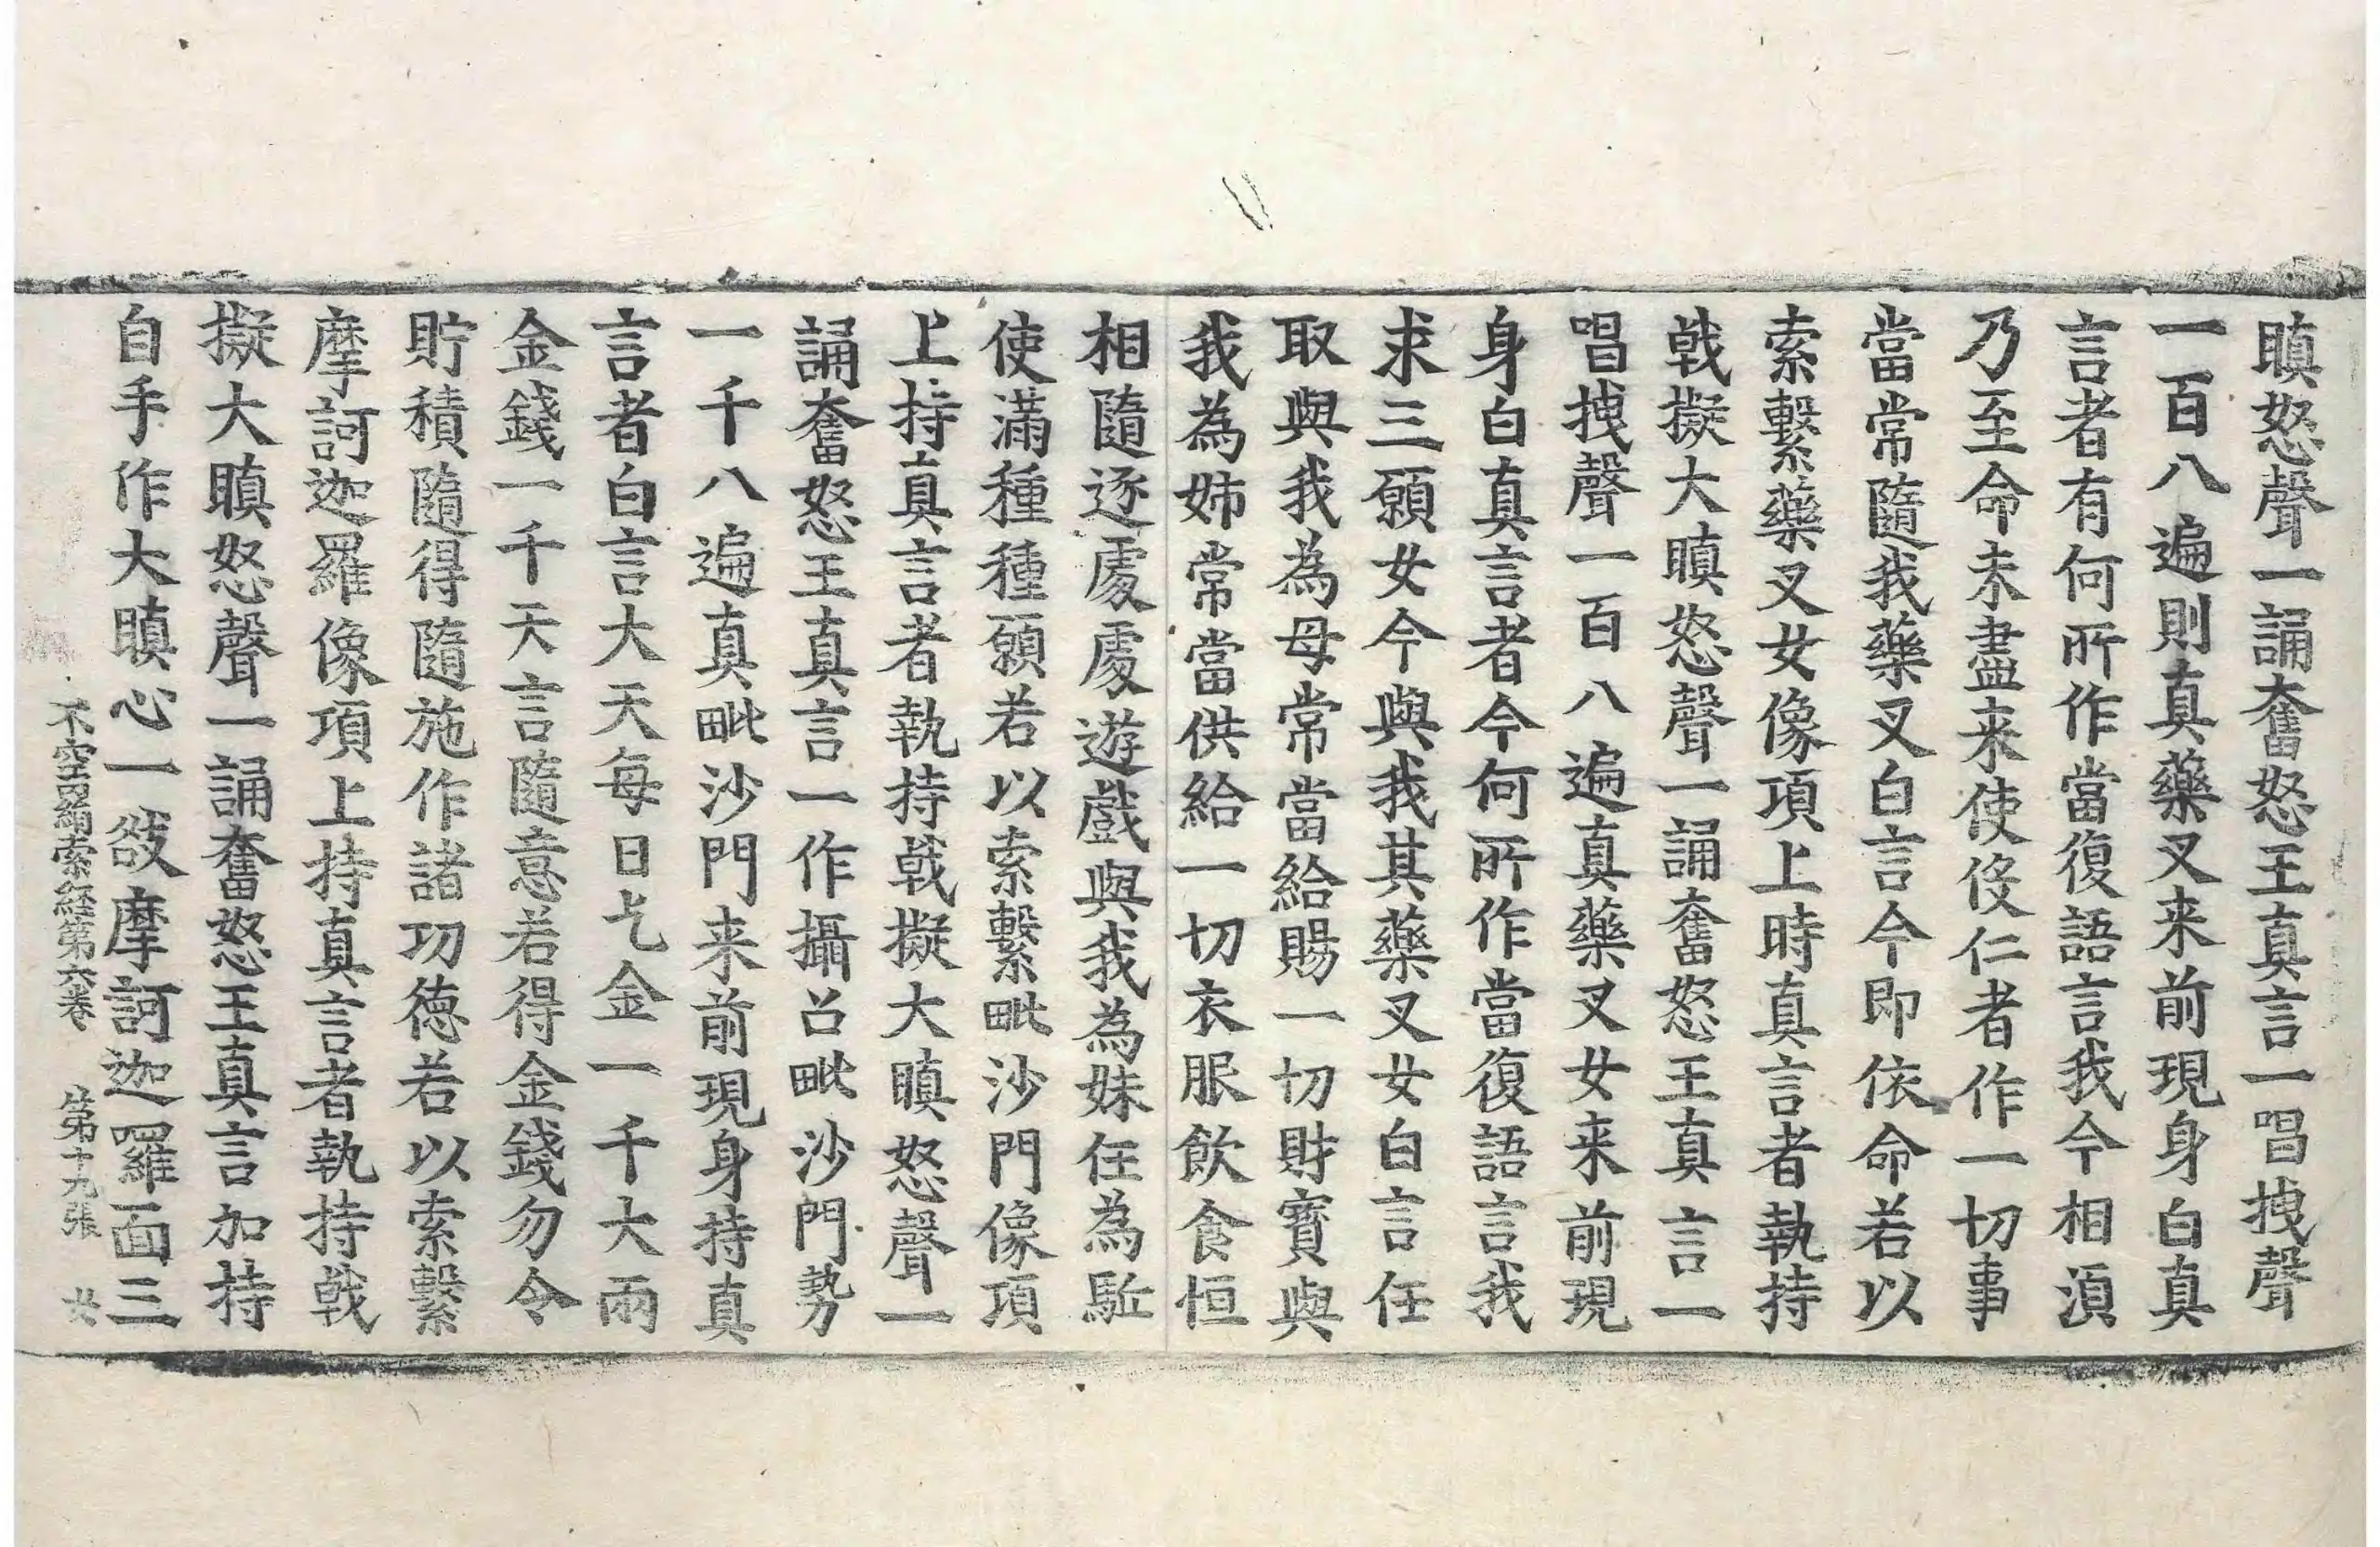 瞋怒聲一誦奮怒王真言一唱拽聲
一百八遍則真藥叉来前現身白真
言者有何所作當復語言我今相湏
乃至命未盡来使伇仁者作一切事
當常隨我藥叉白言今即依命若以
索繫藥叉女像項上時真言者執持
戟擬大瞋怒聲一誦奮怒王真言一
唱拽聲一百八遍真藥叉女来前現
身白真言者今何所作當復語言我
求三願女今與我其藥叉女白言任
取與我為母常當給賜一切財寶與
我為姉常當供給一切衣服飲食恒
相隨逐處處遊戲與我為妹任為駈
使滿種種願若以索繫毗沙門像項
上持真言者執持戟擬大瞋怒聲一
誦奮怒王真言一作攝召毗沙門勢
一千八遍真毗沙門来前現身持真
言者白言大天每日乞金一千大兩
金錢一千天言隨意若得金錢勿令
貯積隨得隨施作諸功德若以索繫
摩訶迦羅像項上持真言者執持戟
擬大瞋怒聲一誦奮怒王真言加持
自手作大瞋心一㧻摩訶迦囉面三
不空羂索経第六卷 第十九張 女